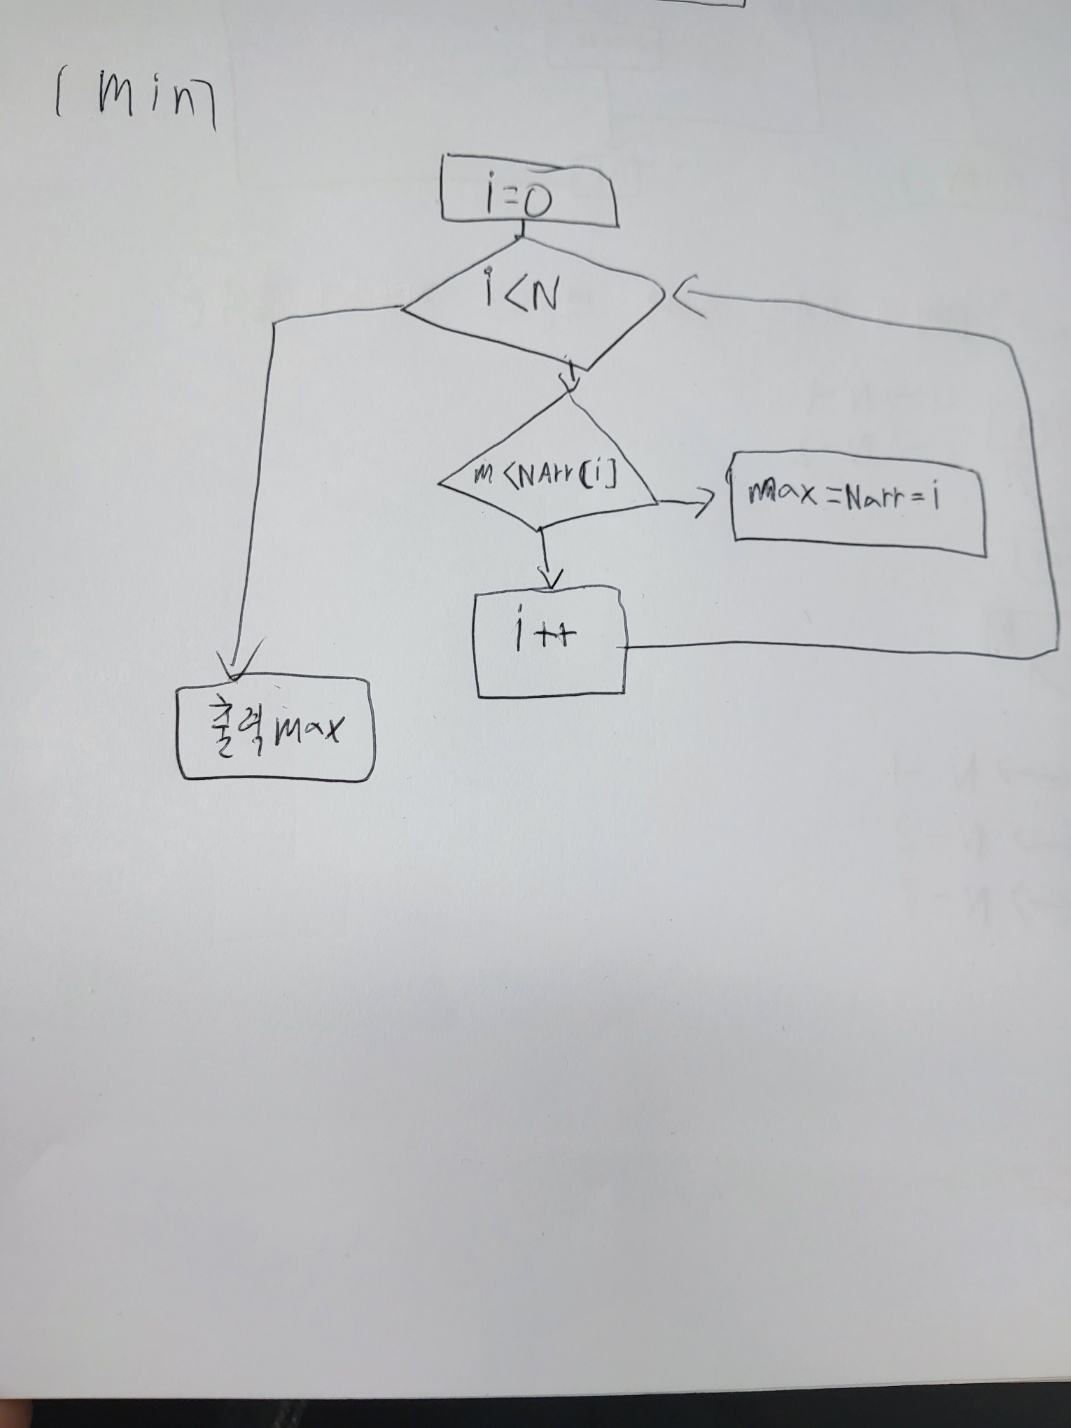 [min]
i=0
i<N
m<NArr[i]
max=Narr=i
i++
출력max